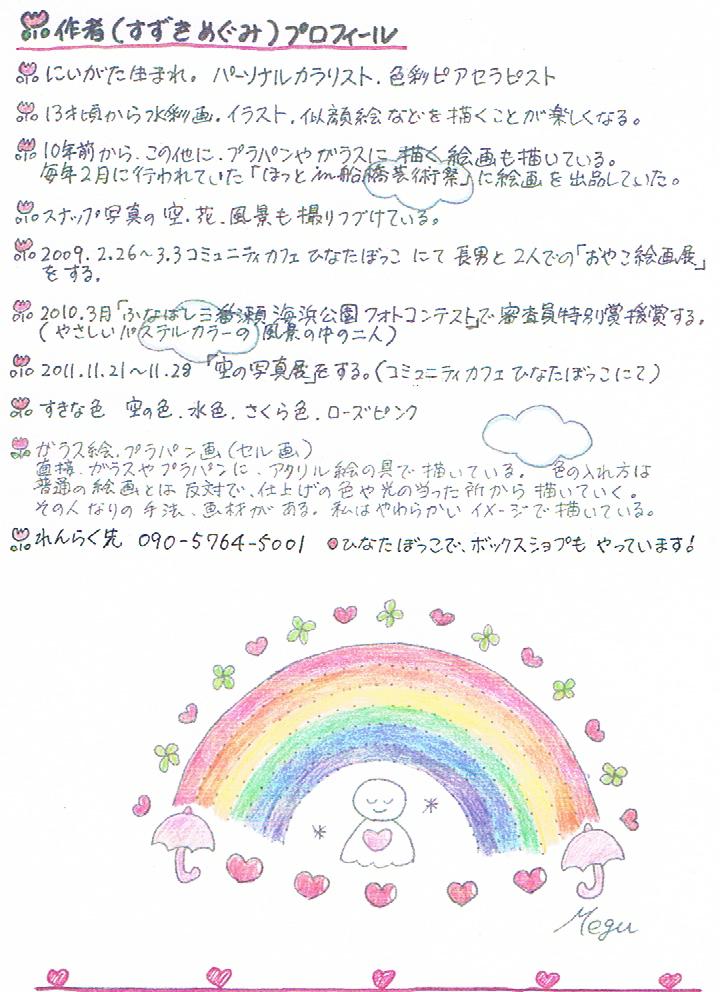 作者(すずきめぐみ)プロフィール
にいがた生まれ。 パーソナルカラリスト.色彩ピアセラピスト
13才頃から水彩画.イラスト.似顔絵などを描くことが楽しくなる。
10年前から、この他に、プラバンやガラスに 描く絵画も描いている。
毎年2月に行われていた「ほっとin船橋芸術祭」に絵画を出品していた。
スナップ写真の空.花.風景も撮りつづけている。
2009.2.26〜3.3コミュニティカフェ ひなたぼっこ にて 長男と2人での「おやこ絵画展」
をする。
2010.3月「ふなばし三番瀬海浜公園フォトコンテスト」で審査員特別賞援賞する。
(やさしいパステルカラーの風景の中の二人)
2011.11.21〜11.28 「空の写真展」をする。(コミュニティカフェ ひなたぼっこにて)
すきな色 空の色.水色.さくら色.ローズピンク
ガラス絵.プラバン画(セル画)
直接.ガラスやプラバンに、アクリル絵の具で描いている。 色の入れ方は
普通の絵画とは反対で、仕上げの色や光の当った所から描いていく。
その人なりの手法、画材がある。私はやわらかいイメージで描いている。
れんらく先 090-5764-5001 ●ひなたぼっこで、ボックスショプも やっています!
Megu